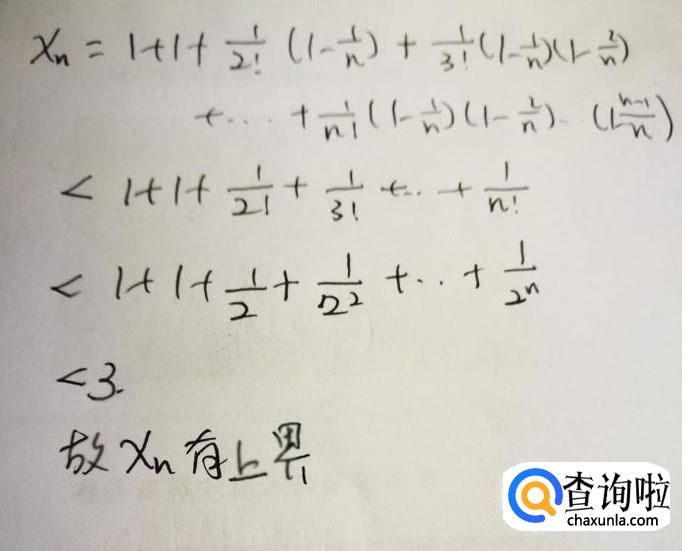 Xn = 1+1+ 1/2! (1-1/n) + 1/3! (1-1/n)(1-2/n)
+... + 1/n! (1-1/n)(1-2/n)..(1-n-1/n)
< 1+1+ 1/2! + 1/3! +..+ 1/n!
< 1+1+ 1/2 + 1/2² +..+ 1/2ⁿ
<3.
故Xn有上界
查询啦
chaxunla.com